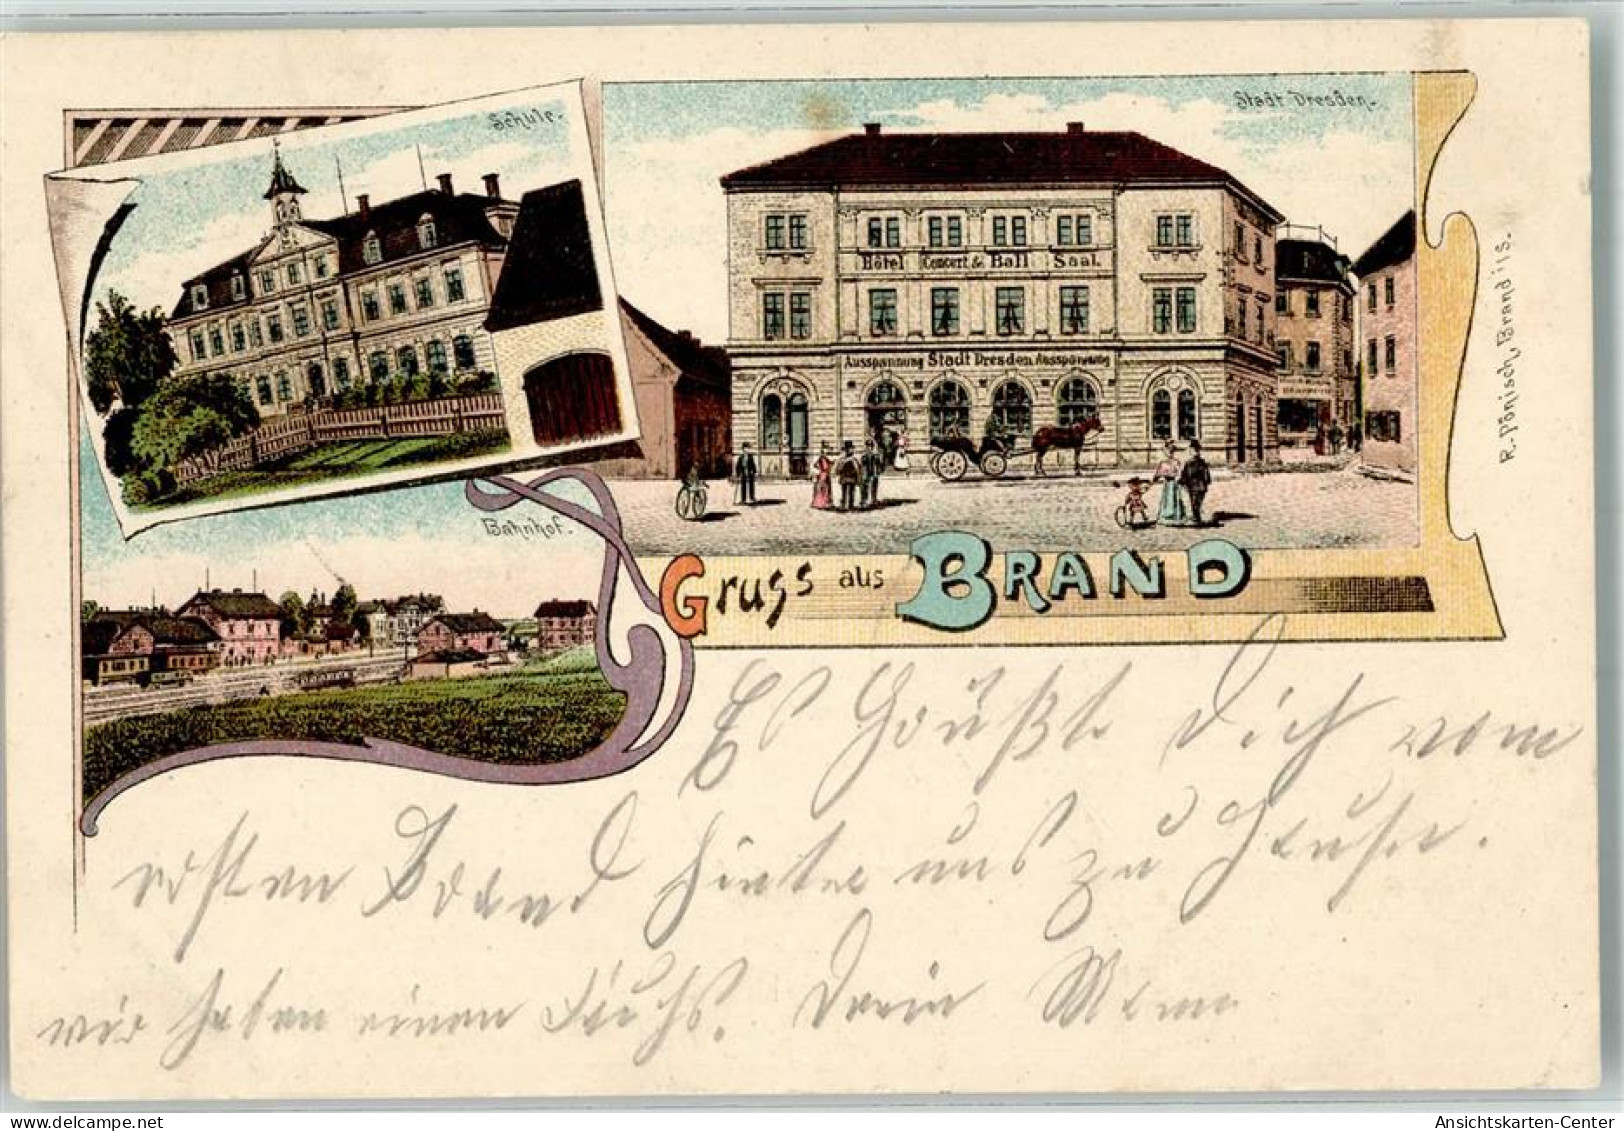 Schule.
Stadt Dresden.
Hôtel Concert & Ball Saal.
Ausspannung Stadt Dresden Ausspannung
R. Pönisch, Brand i/S.
Bahnhof.
Gruss aus BRAND
Es grüßt Dich vom
ersten Brand hinter uns zu Hause.
wir haben einen Fuchs. Dein Mann
Ansichtskarten-Center